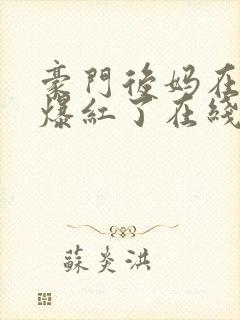 豪門後妈在
爆紅了在綫
蘇炎洪